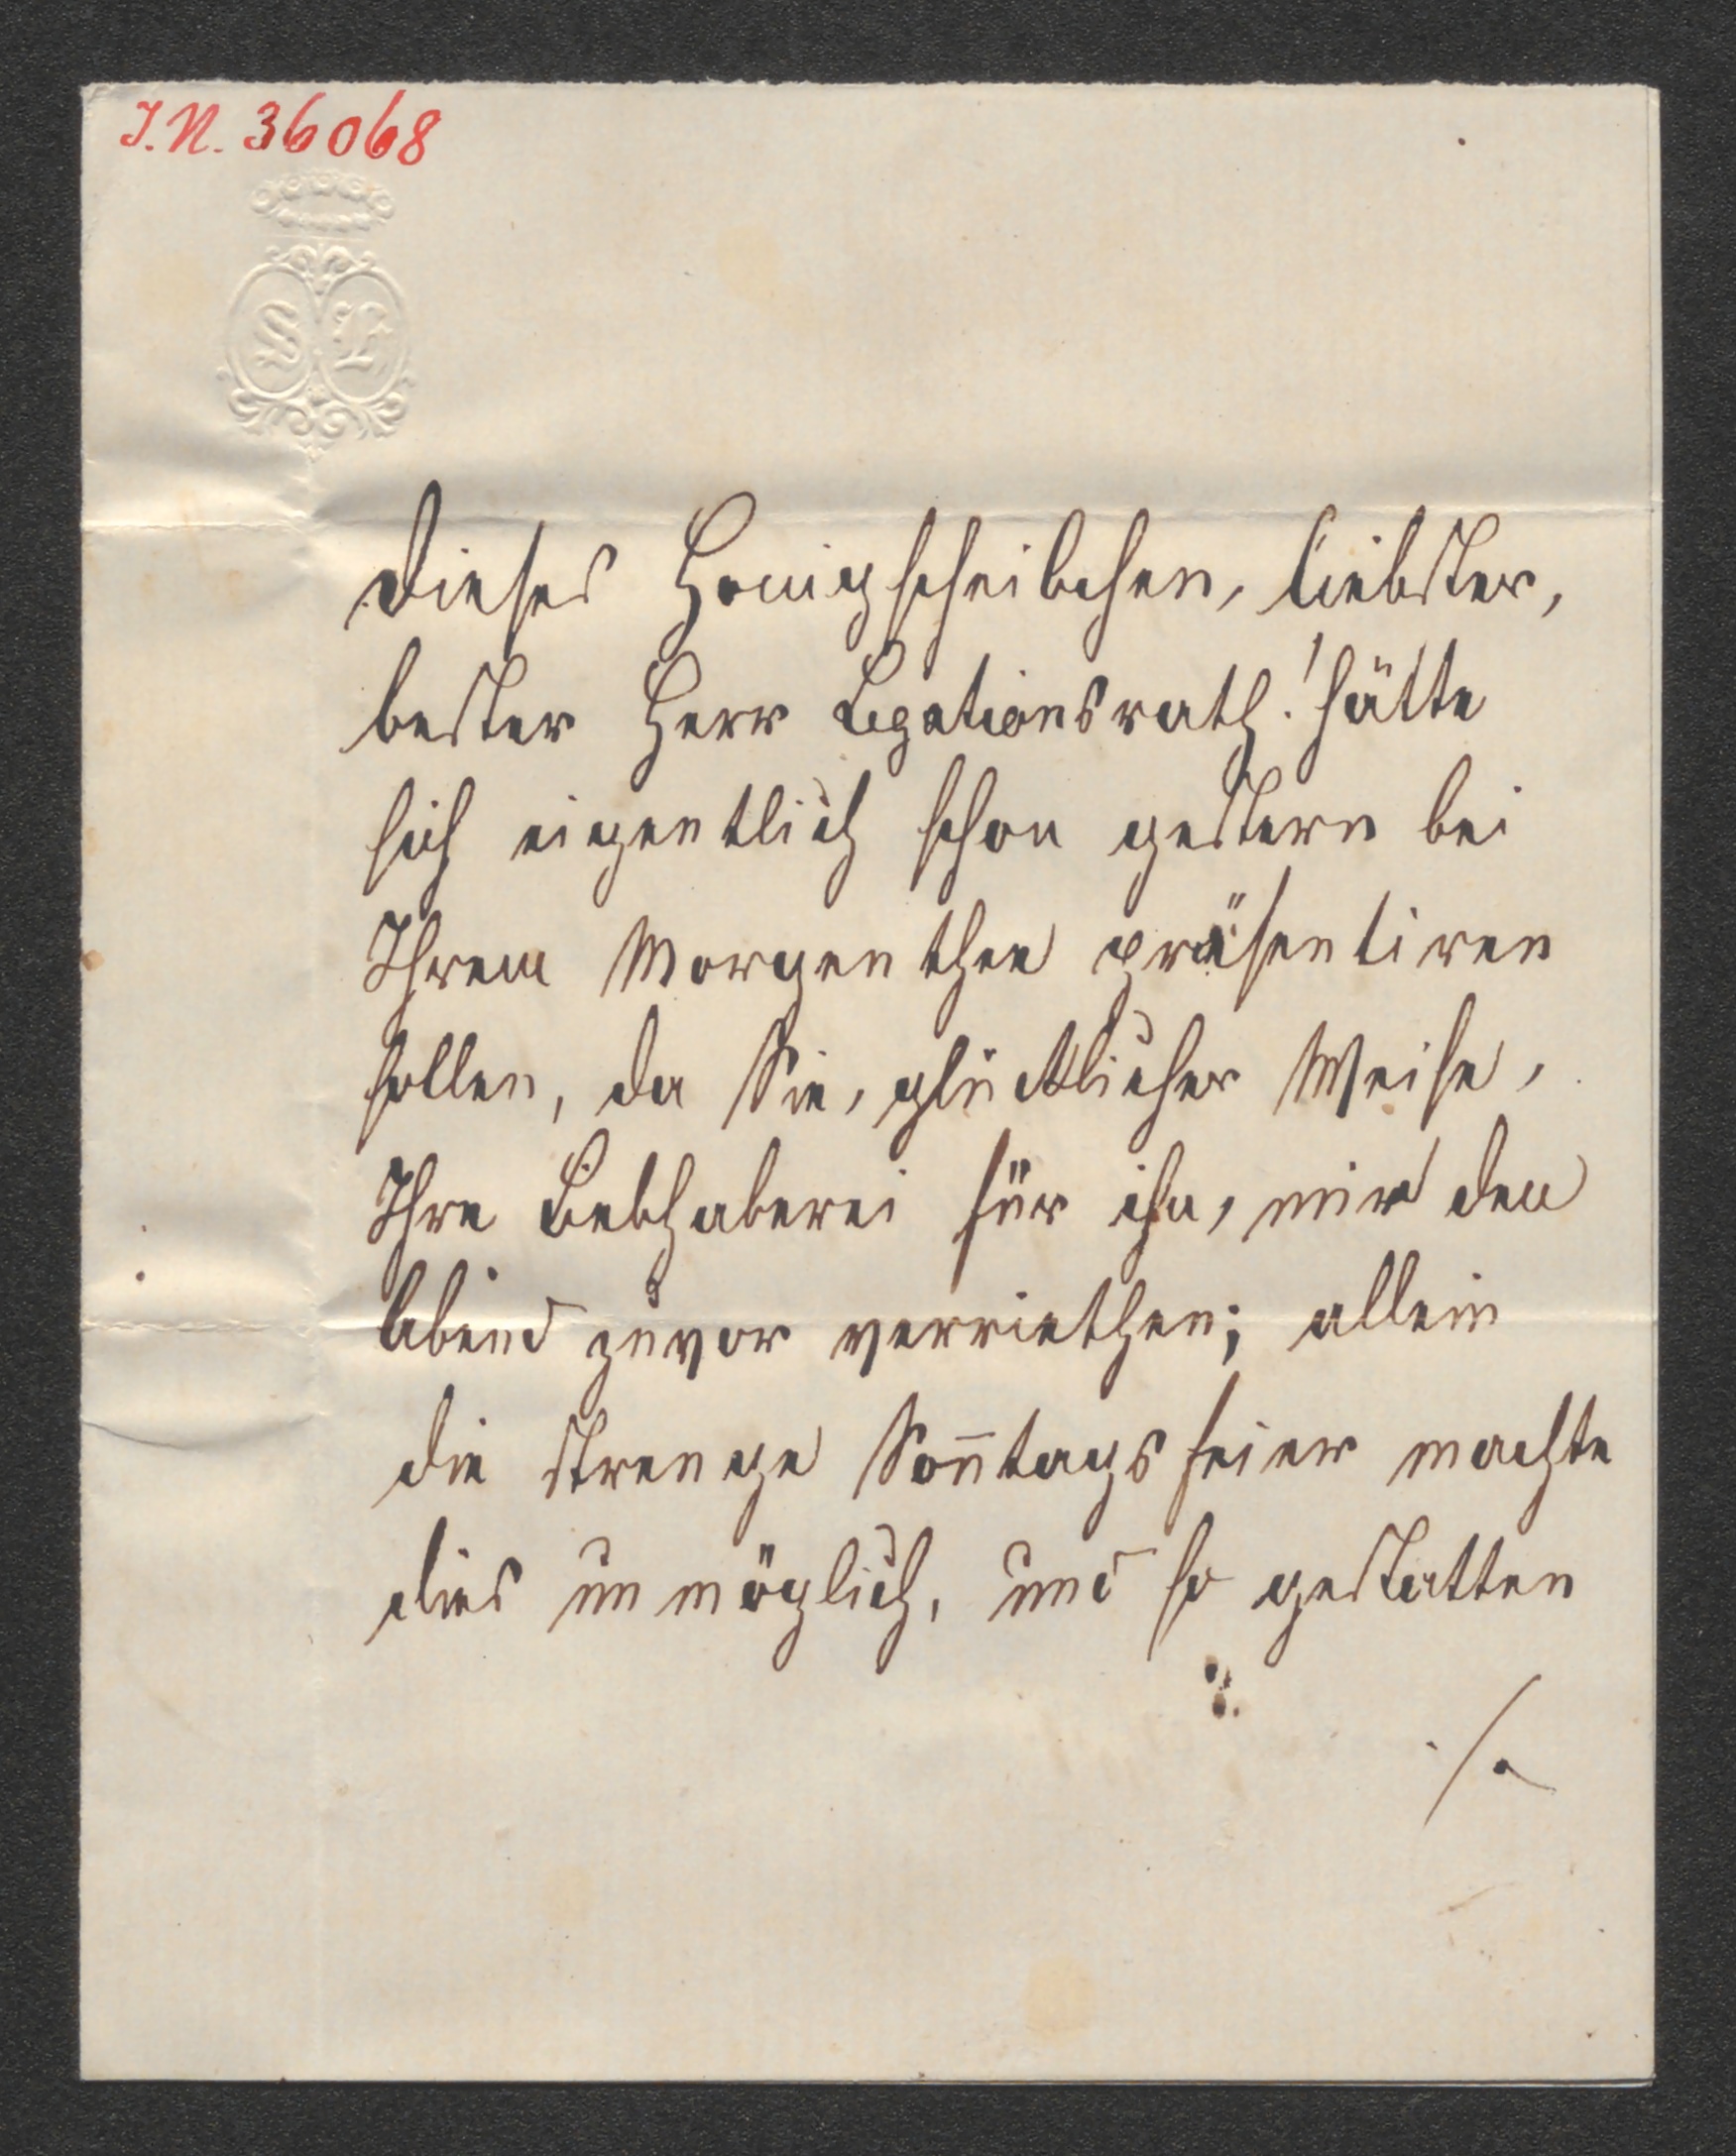 J.N. 36068
S L
Dieses Honigscheibchen, liebster,
bester Herr Legationsrath! hätte
sich eigentlich schon gestern bei
Ihrem Morgenthee präsentiren
sollen, da Sie, glücklicher Weise,
Ihre Liebhaberei für ihn, mir den
Abend zuvor verriethen; allein
die strenge Son̄tagsfeier machte
dies unmöglich, und so gestatten
./.